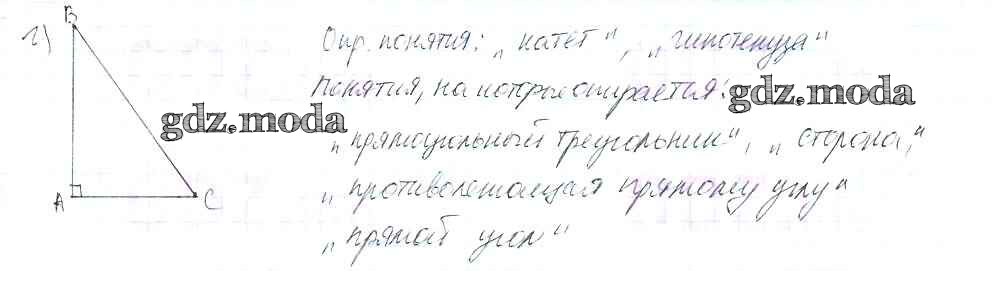 г) B
Опр. понятия: „катет“, „гипотенуза“
Понятия, на которые опирается:
gdz.moda
gdz.moda
„прямоугольный треугольник“, „сторона,“
„противолежащая прямому углу“
A C
„прямой угол“